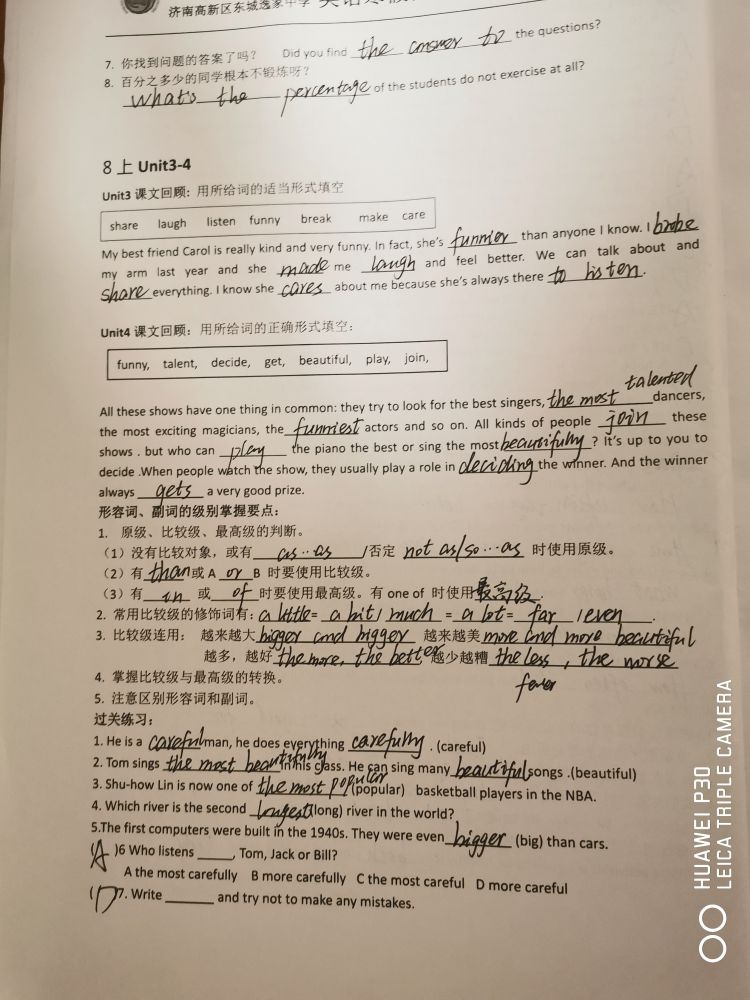 济南高新区东城逸家中学
7. 你找到问题的答案了吗? Did you find the answer to the questions?
8. 百分之多少的同学根本不锻炼呀?
What's the percentage of the students do not exercise at all?
8 上 Unit3-4
Unit3 课文回顾: 用所给词的适当形式填空
share laugh listen funny break make care
My best friend Carol is really kind and very funny. In fact, she's funnier than anyone I know. I broke
my arm last year and she made me laugh and feel better. We can talk about and
share everything. I know she cares about me because she's always there to listen.
Unit4 课文回顾: 用所给词的正确形式填空:
funny, talent, decide, get, beautiful, play, join,
talented
All these shows have one thing in common: they try to look for the best singers, the most dancers,
the most exciting magicians, the funniest actors and so on. All kinds of people join these
shows . but who can play the piano the best or sing the most beautifully ? It's up to you to
decide .When people watch the show, they usually play a role in deciding the winner. And the winner
always gets a very good prize.
形容词、副词的级别掌握要点:
1. 原级、比较级、最高级的判断。
(1)没有比较对象, 或有 as…as /否定 not as/so…as 时使用原级。
(2)有 than 或 A or B 时要使用比较级。
(3)有 in 或 of 时要使用最高级。有 one of 时使用最高级.
2. 常用比较级的修饰词有: a little = a bit / much = a lot = far / even .
3. 比较级连用: 越来越大 bigger and bigger 越来越美 more and more beautiful
越多, 越好 the more, the better 越少越糟 the less , the worse
fewer
4. 掌握比较级与最高级的转换。
5. 注意区别形容词和副词。
过关练习:
1. He is a careful man, he does everything carefully . (careful)
2. Tom sings the most beautifully in his class. He can sing many beautiful songs .(beautiful)
3. Shu-how Lin is now one of the most popular (popular) basketball players in the NBA.
4. Which river is the second longest (long) river in the world?
5.The first computers were built in the 1940s. They were even bigger (big) than cars.
(A )6 Who listens _____, Tom, Jack or Bill?
A the most carefully B more carefully C the most careful D more careful
(D )7. Write _______ and try not to make any mistakes.
HUAWEI P30
LEICA TRIPLE CAMERA